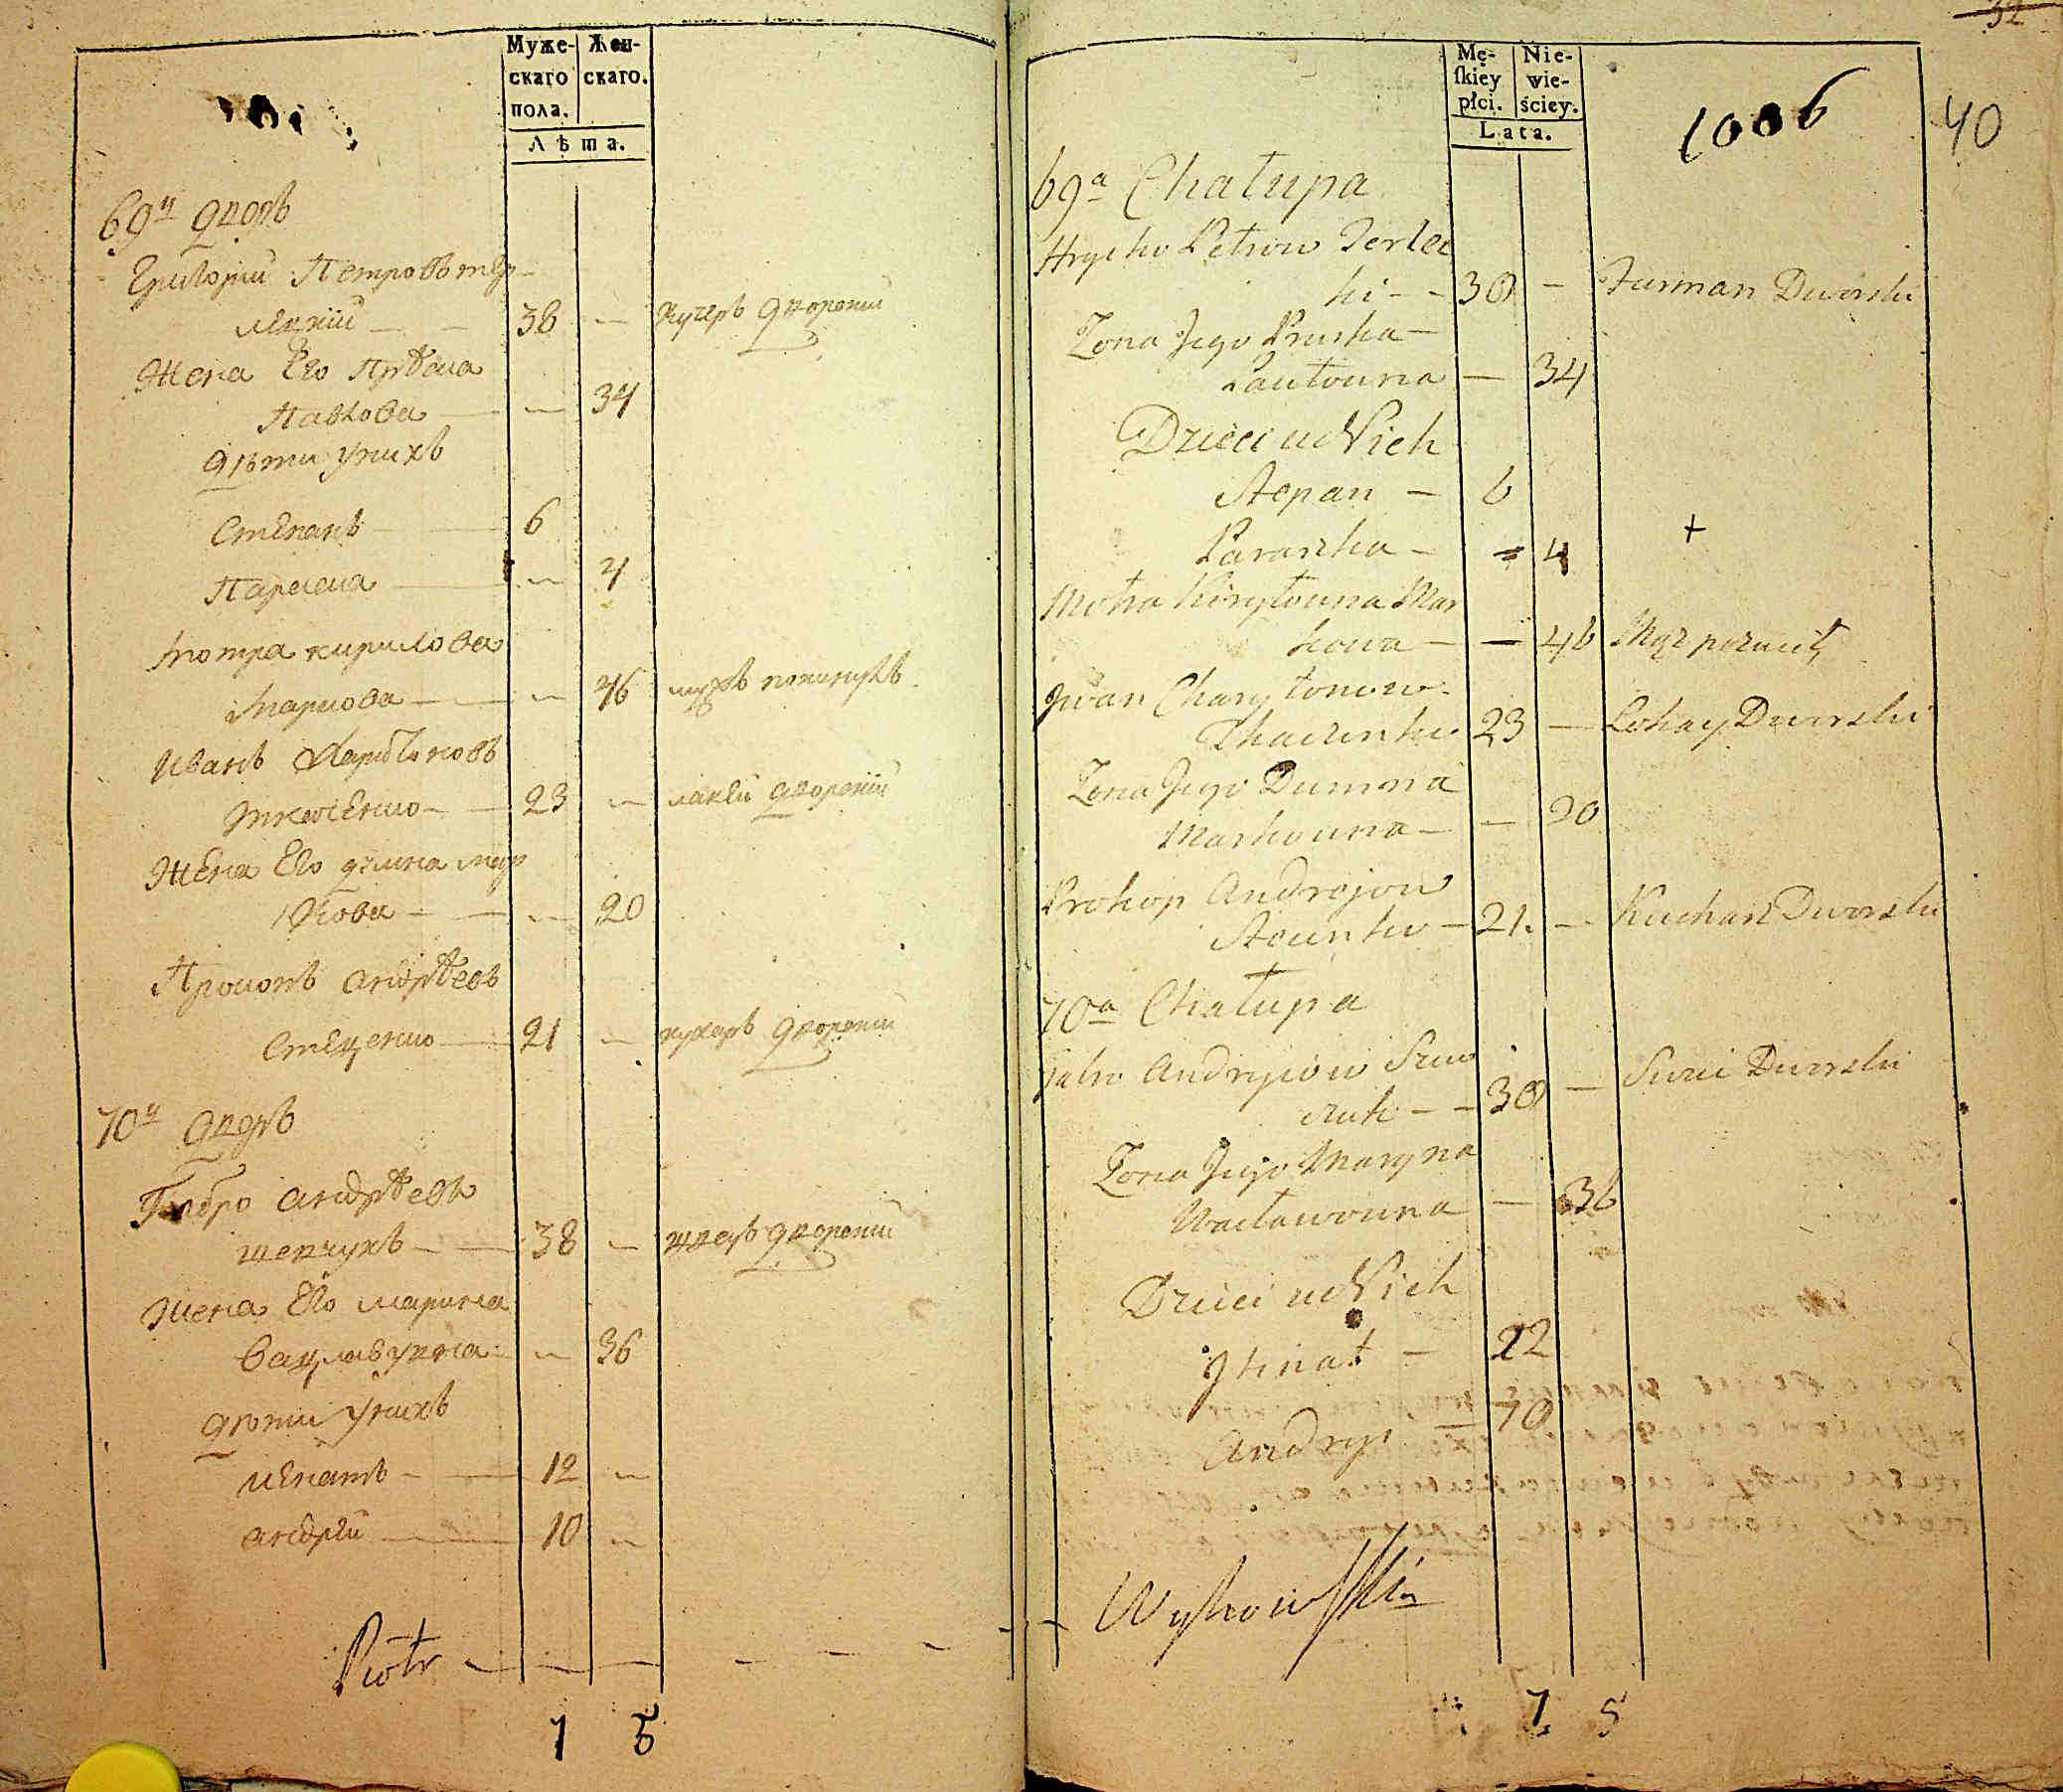 Муже-
скаго
пола.
Жен-
скаго.
Лѣта.
69й дворъ
Григорий Петровъ Тер-
лецкий — — 38 — кучеръ дворский
Жена Его Прѣська
Павлова — — 34
Дѣти у нихъ
Степанъ — 6
Параска — — 4
Мотра Кирилова
Маркова — — 46 мужъ покинулъ
Иванъ Харитоновъ
Ткаченко — 23 — лакей дворский
Жена Его Думна Мар
кова — — 20
Прокопъ Андрѣевъ
Стеценко — 21 — кухаръ дворский
70й дворъ
Андрѣевъ
Шевчукъ — 38 — швецъ дворский
Жена Его Марина
Вацлавувна — — 36
Дѣти у нихъ
Игнатъ — 12 —
Андрей — 10 —
Piotr — — — — — —
7 5
32
Mę-
ſkiey
płci.
Nie-
wie-
ściey.
Lata.
1006
40
69a Chałupa
Hryćko Petrow Terlec
ki — — 38 — Furman Dworski
Żona Jego Pruska —
Pawłowna — 34
Dzieci u Nich
Stepan — 6
Paraszka — = 4 +
Motra Kiryłowna Mar
kowa — — 46 Mąż porzucił
Jwan Charytonow
Tkaczenko 23 — Lokay Dworski
Żona Jego Dumna
Markowna — — 20
Prokop Andrejow
Stecenko — 21. — Kucharz Dworski
70a Chałupa
Andryiow Szew
czuk — — 38 — Szwiec Dworski
Żona Jego Maryna
Wacławowna — 36
Dzieci u Nich
Ihnat — 12
Andryi — 10
Wyſkowſki
7 5